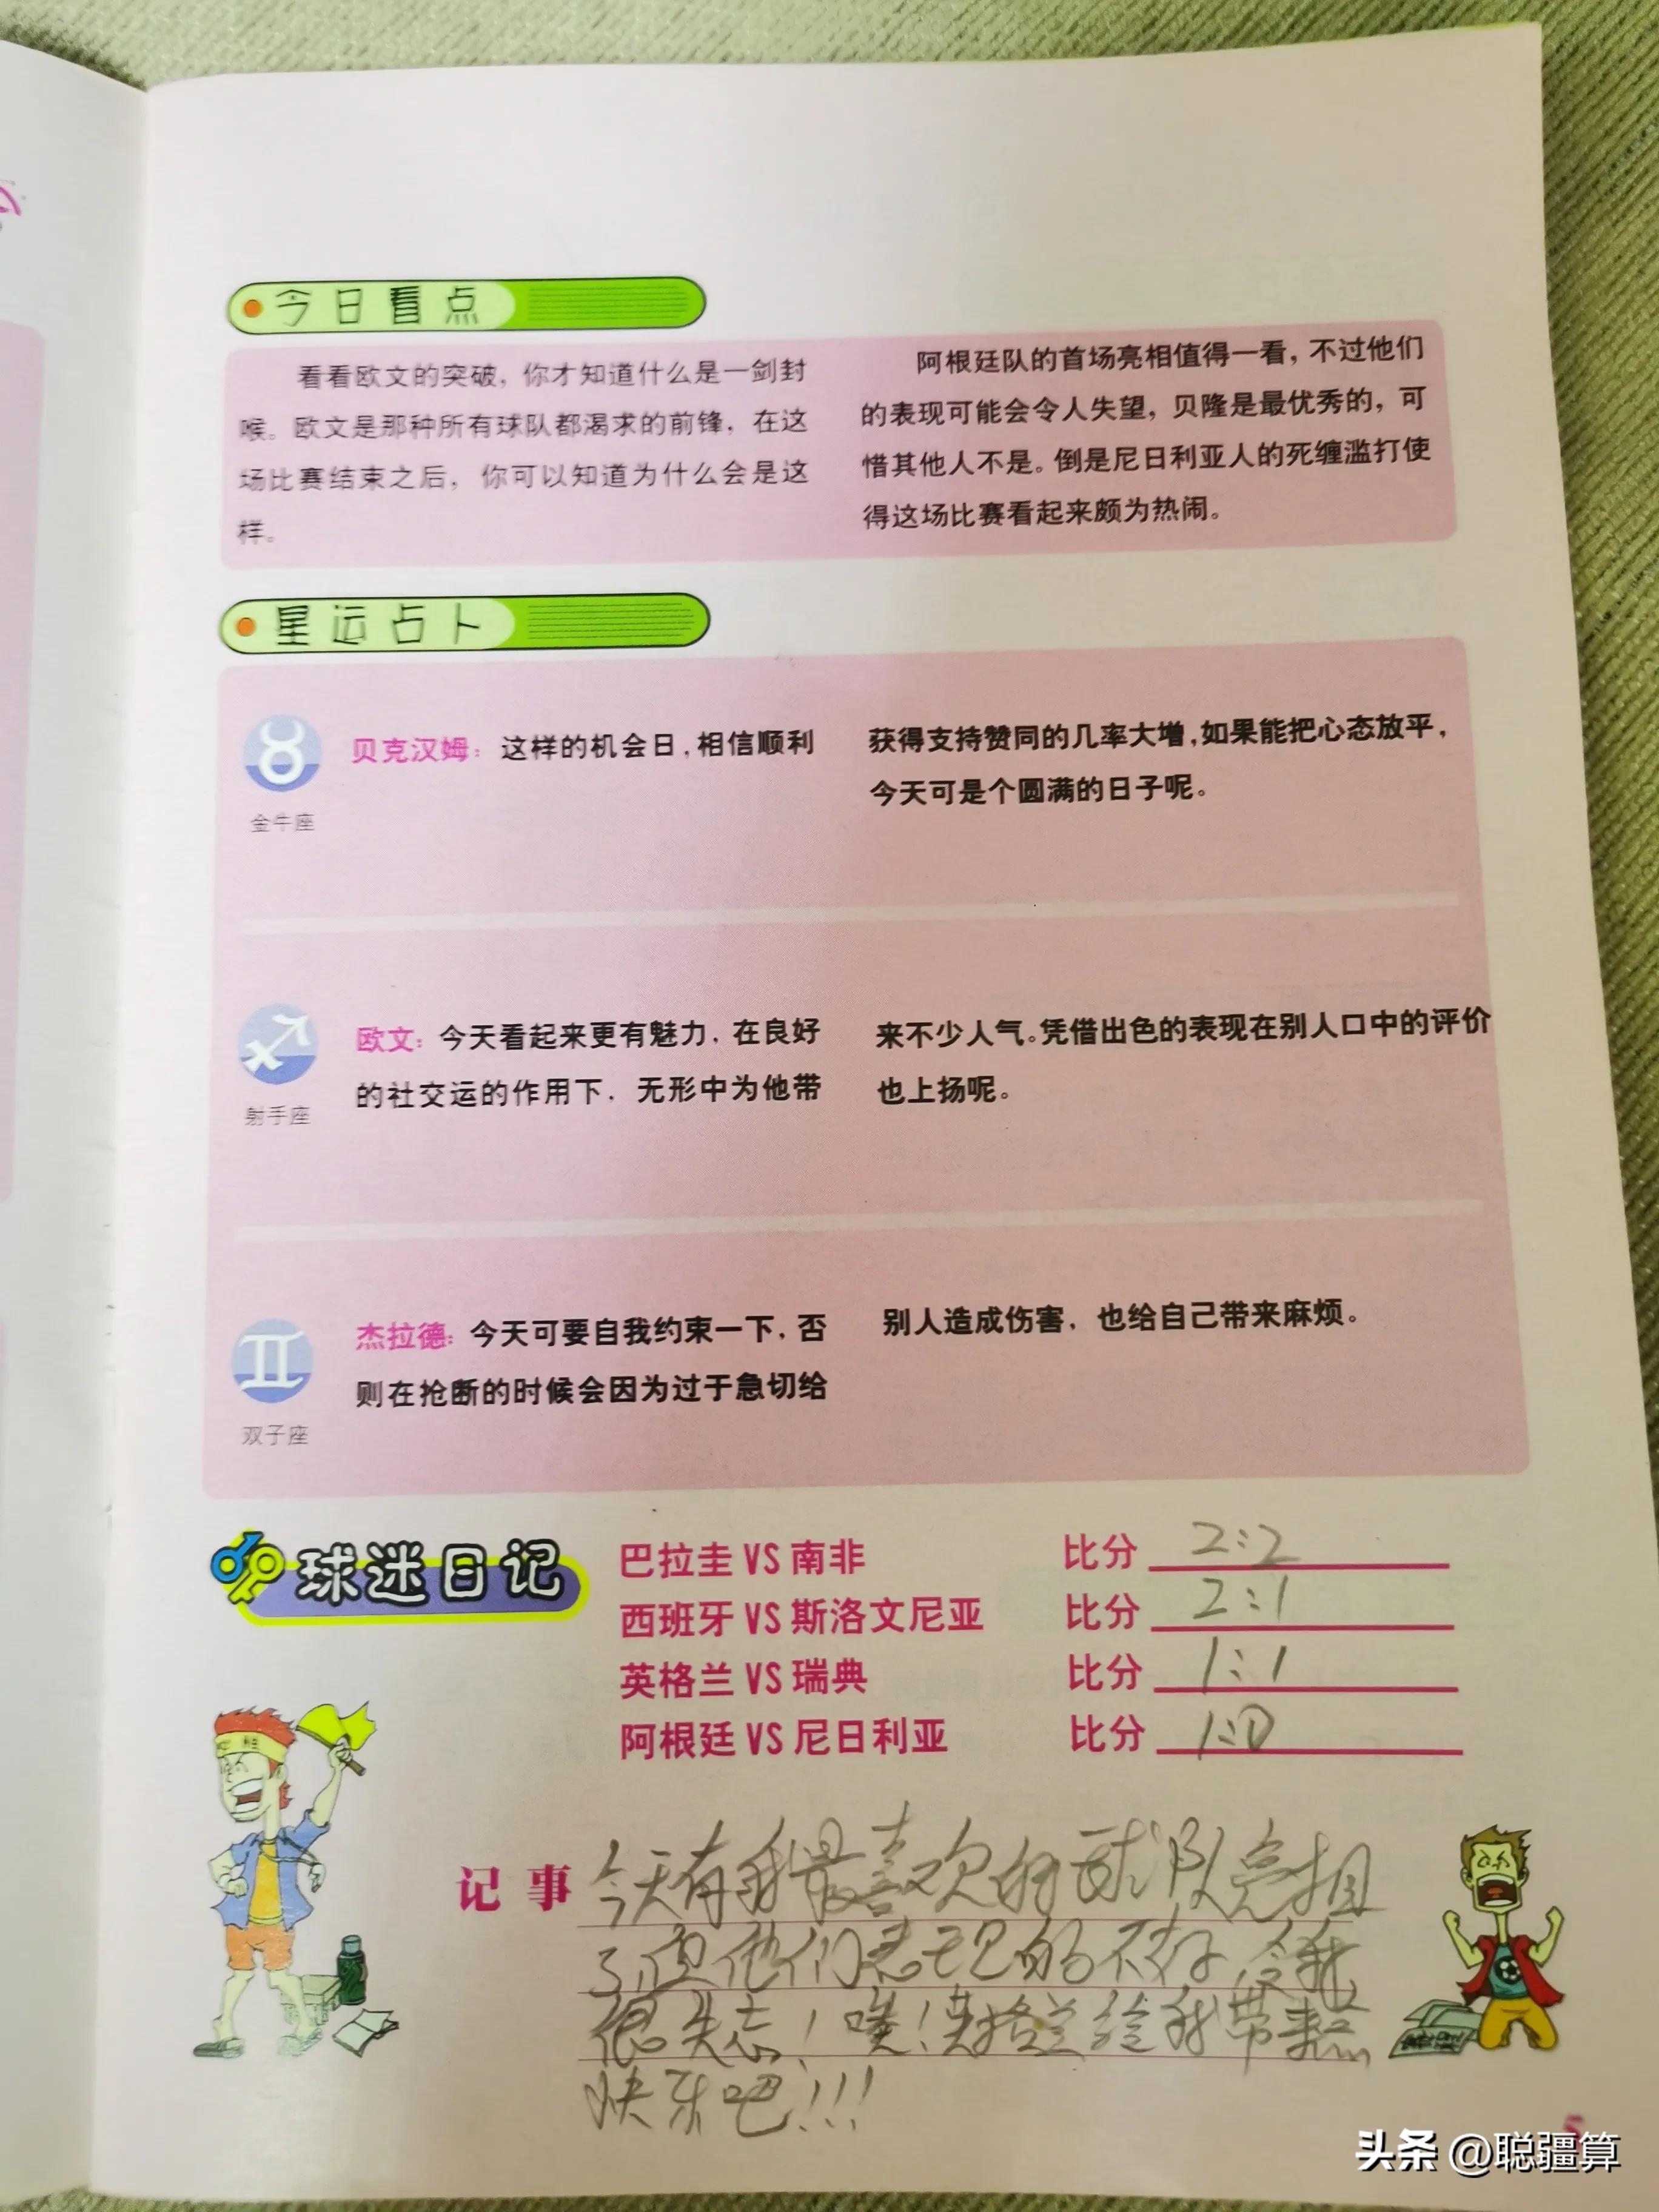 今日看点
看看欧文的突破，你才知道什么是一剑封
喉。欧文是那种所有球队都渴求的前锋，在这
场比赛结束之后，你可以知道为什么会是这
样。
阿根廷队的首场亮相值得一看，不过他们
的表现可能会令人失望，贝隆是最优秀的，可
惜其他人不是。倒是尼日利亚人的死缠滥打使
得这场比赛看起来颇为热闹。
星运占卜
金牛座
贝克汉姆：这样的机会日，相信顺利
获得支持赞同的几率大增，如果能把心态放平，
今天可是个圆满的日子呢。
射手座
欧文：今天看起来更有魅力，在良好
的社交运的作用下，无形中为他带
来不少人气。凭借出色的表现在别人口中的评价
也上扬呢。
双子座
杰拉德：今天可要自我约束一下，否
则在抢断的时候会因为过于急切给
别人造成伤害，也给自己带来麻烦。
球迷日记
巴拉圭 VS 南非 比分 2:2
西班牙 VS 斯洛文尼亚 比分 2:1
英格兰 VS 瑞典 比分 1:1
阿根廷 VS 尼日利亚 比分 1:0
记事 今天有我最喜欢的球队亮相
了，但他们表现的不好，令我
很失志！唉！英格兰给我带来点
快乐吧！！！
5
头条 @聪疆算